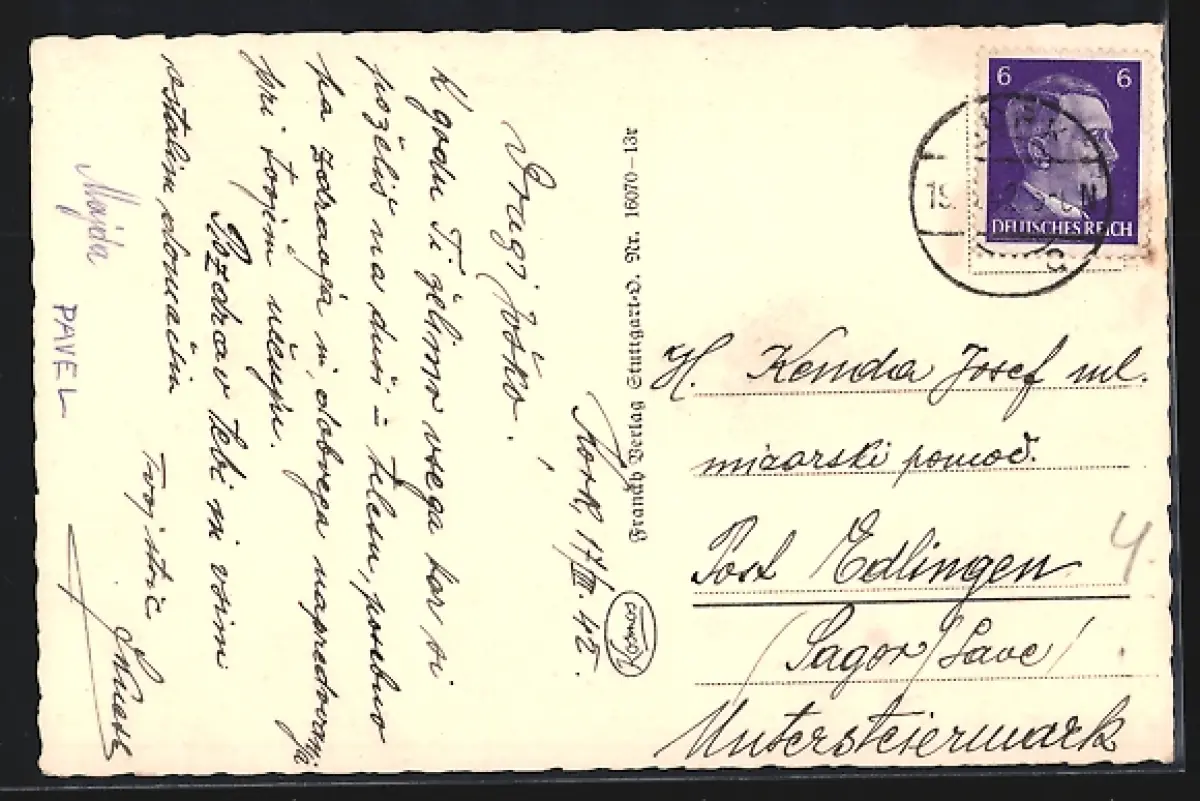 York, 17/III. 42.
Dragi Joško!
K godu Ti želimo vsega kar si
poželiš na duši - telesu, posebno
pa zdravja in dobrega napredovanja
pri tvojem učenju.
Pozdrav tebi in vsim
ostalim domačim
Tvoj stric
Majda
PAVEL
Franckh Verlag Stuttgart-O. Nr. 16070-13r
Kosmos
6 6
DEUTSCHES REICH
H. Kenda Josef ml.
mizarski pomoč.
Post Edlingen
/Sagor/Save/
Untersteiermark
4.